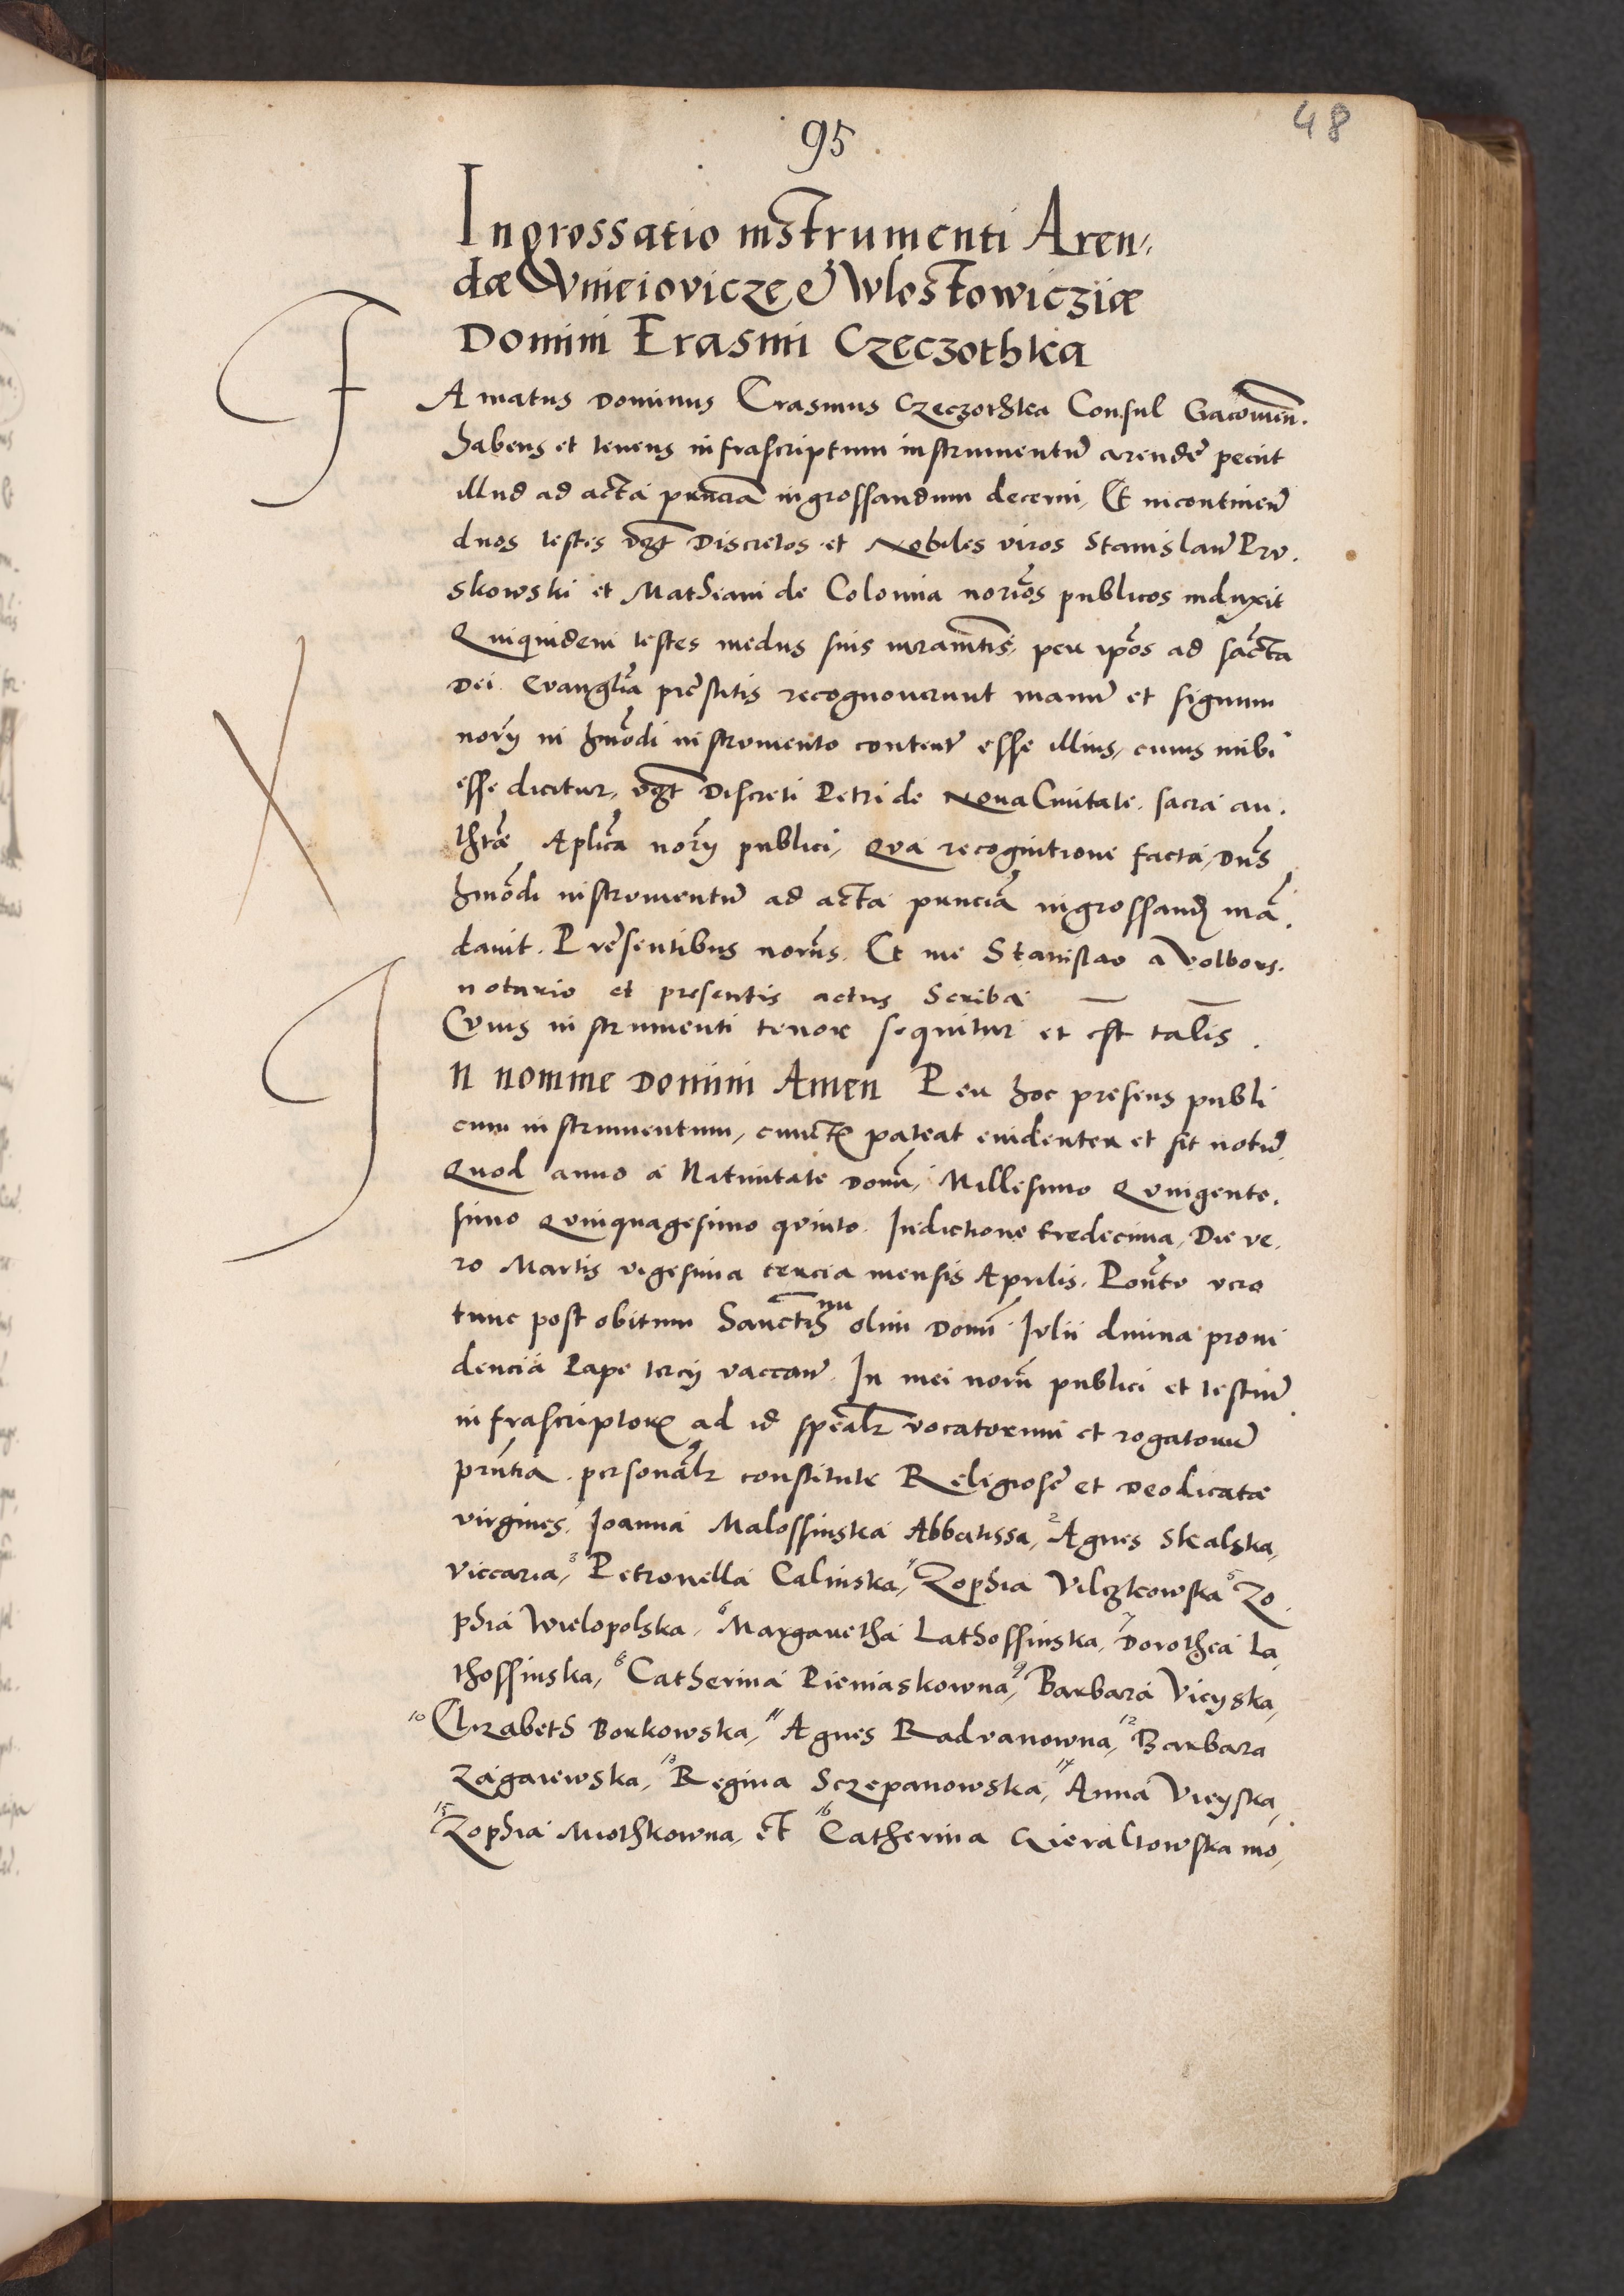 48
95
Ingrossatio instrumenti Aren-
dæ Vnieiovicze & Wlostowicziæ
Domini Erasmi Czeczothka
FAmatus Dominus Erasmus Czeczothka Consul Gracovien̄.
habens et tenens infrascriptum instrumentū arendę peciit
illud ad acta pn̄ciā ingrossandum decerni, Et incontinen̄
duos testes vꝫt Discretos et Nobiles viros Stanislaū Pru-
skowski et Mathiam de Colonia noriōs publicos induxit
Quiquidem testes medus suis iuramn̄tis, per ip̄os ad sācta
Dei Evanglīa prēstitis recognoverunt manū et signum
norīj in hmōdi instrumento content̄ esse illius, cuius inibi
esse dicitur, vꝫt Discreti Petri de Nova Civitate sacra au-
thtē Aplicā norīj publici, Qua recognitione facta, Dn̄s
hmōdi instrumentū ad acta pn̄ciā ingrossanꝺ mā-
davit. Presentibus norīis. Et me Stanislao a Volbors.
notario et presentis actus Scriba —
Cuius instrumenti tenor sequitur et est talis.
IN nomine Domini Amen Per hoc presens publi
cum instrumentum, cunctꝭ pateat evidenter et sit notū.
Quod anno a Nativitate Domī, Millesimo Quingente-
simo Quinquagesimo quinto. Indictione tredecima, Die ve-
ro Martis vigesima tercia mensis Aprilis. Pontō vero
tunc post obitum Sanctissmi olim Domī Iulii divina provi
dencia Pape tercij vaccan̄. In mei norīi publici et testiū
infrascriptorꝝ ad id specialr̄ vocatorum et rogatorū
prn̄tia. personalr̄ constitute Religiosę et Deodicatæ
virgines, Ioanna Malossinska Abbatissa, 2 Agnes Skalska,
viccaria, 3 Petronella Calinska, 4 Zophia Vilczkowska 5 Zo-
phia Wielopolska, 6 Margaretha Lathossinska, 7 Dorothea La-
thossinska, 8 Catherina Pieniaskowna, 9 Barbara Vicyska,
10 Elizabeth Borkowska, 11 Agnes Radvanowna, 12 Barbara
Zagaiewska, 13 Regina Sczepanowska, 14 Anna Vieyska,
15 Zophia Miothkowna, et 16 Catherina Gieraltowska mo-